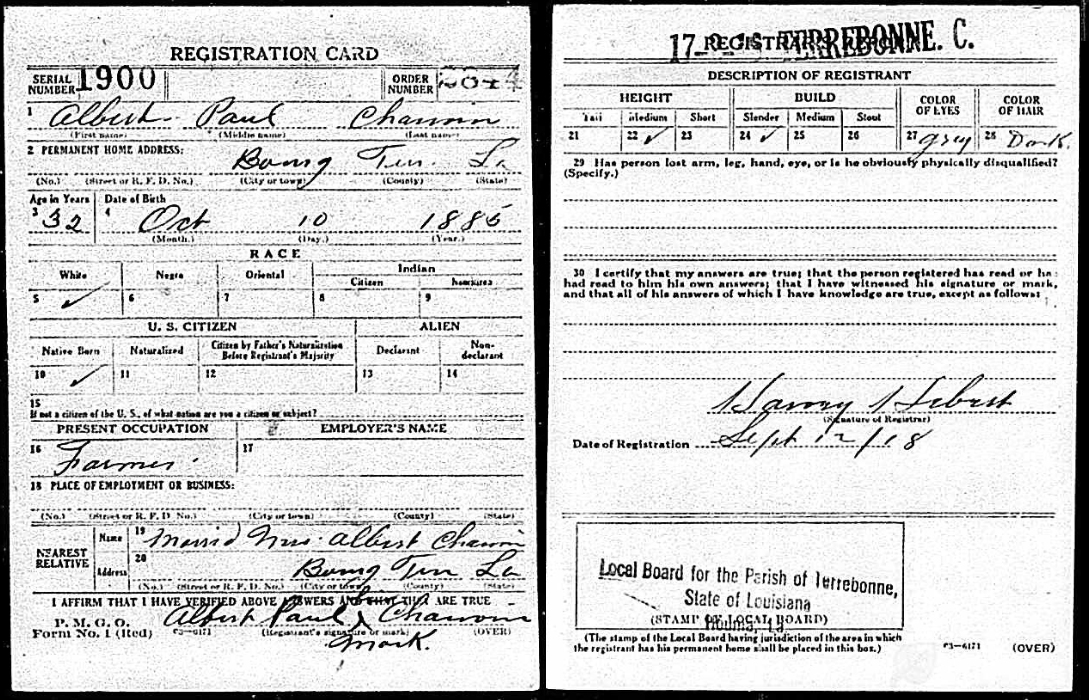 REGISTRATION CARD
SERIAL NUMBER 1900 ORDER NUMBER
1 Albert Paul Chauvin
(First name) (Middle name) (Last name)
2 PERMANENT HOME ADDRESS:
Bourg Terr. La
(No.) (Street or R. F. D. No.) (City or town) (County) (State)
Age in Years Date of Birth
3 32 4 Oct 10 1886
(Month.) (Day.) (Year.)
RACE
White Negro Oriental Indian
Citizen Noncitizen
5 ✓ 6 7 8 9
U. S. CITIZEN ALIEN
Native Born Naturalized Citizen by Father's Naturalization Before Registrant's Majority Declarant Non-declarant
10 ✓ 11 12 13 14
15
If not a citizen of the U. S., of what nation are you a citizen or subject?
PRESENT OCCUPATION EMPLOYER'S NAME
16 Farmer 17
18 PLACE OF EMPLOYMENT OR BUSINESS:
(No.) (Street or R. F. D. No.) (City or town) (County) (State)
NEAREST RELATIVE Name 19 Mrs. Albert Chauvin
Address 20 Bourg Terr La
(No.) (Street or R. F. D. No.) (City or town) (County) (State)
I AFFIRM THAT I HAVE VERIFIED ABOVE ANSWERS AND THAT THEY ARE TRUE
P. M. G. O.
Form No. 1 (Red) 03—6171 Albert Paul x Chauvin
(Registrant's signature or mark) (OVER)
mark.
REGISTRAR'S REPORT
TERREBONNE. C.
DESCRIPTION OF REGISTRANT
HEIGHT BUILD COLOR OF EYES COLOR OF HAIR
Tall Medium Short Slender Medium Stout
21 22 ✓ 23 24 ✓ 25 26 27 Grey 28 Dark.
29 Has person lost arm, leg, hand, eye, or is he obviously physically disqualified?
(Specify.)
30 I certify that my answers are true; that the person registered has read or has
had read to him his own answers; that I have witnessed his signature or mark,
and that all of his answers of which I have knowledge are true, except as follows:
Harry Hebert
(Signature of Registrar)
Date of Registration Sept 12/18
Local Board for the Parish of Terrebonne,
State of Louisiana
(STAMP OF LOCAL BOARD)
Houma, La.
(The stamp of the Local Board having jurisdiction of the area in which
the registrant has his permanent home shall be placed in this box.)
03—6171 (OVER)